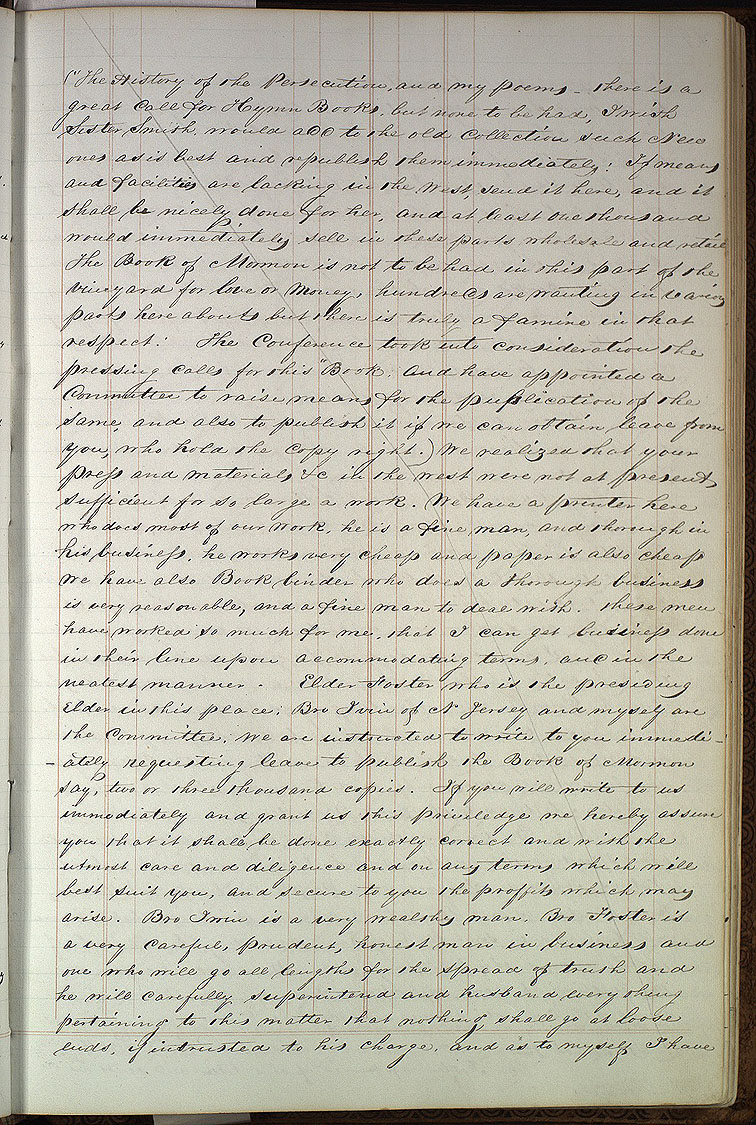 ("The History of the Persecution, and my poems - there is a
great call for Hymn Books, but none to be had, I wish
Sister Smith, would add to the old Collection such New
ones as is best and republish them immediately; If means
and facilities are lacking in the West, send it here, and it
shall be nicely done for her, and at least one thousand
would immediately sell in these parts wholesale and retail
The Book of Mormon is not to be had in this part of the
vineyard for love or money, hundreds are waiting in various
parts here abouts but there is truly a famine in that
respect. The Conference took into consideration the
pressing calls for this "Book; And have appointed a
Committee to raise means for the publication of the
same, and also to publish it if we can obtain leave from
you, who hold the copy right.) We realized that your
press and materials &c in the west were not at present
sufficient for so large a work. We have a printer here
who does most of our work, he is a fine man, and thorough in
his business, he works very cheap and paper is also cheap
we have also Book binder who does a thorough business
is very reasonable, and a fine man to deal with. These men
have worked so much for me, that I can get business done
in their line upon accommodating terms, and in the
neatest manner - Elder Foster who is the presiding
Elder in this place; Bro Ivin of N Jersey and myself are
the Committee; We are instructed to write to you immedi-
-ately requesting leave to publish the Book of Mormon
say, two or three thousand copies. If you will write to us
immediately and grant us this priviledge we hereby assure
you that it shall be done exactly correct and with the
utmost care and diligence and on any terms which will
best suit you, and secure to you the proffits which may
arise. Bro Ivin is a very wealthy man, Bro Foster is
a very careful, prudent, honest man in business and
one who will go all lengths for the spread of truth and
he will carefully superintend and husband every thing
pertaining to this matter that nothing shall go at loose
ends, if intrusted to his charge, and as to myself I have